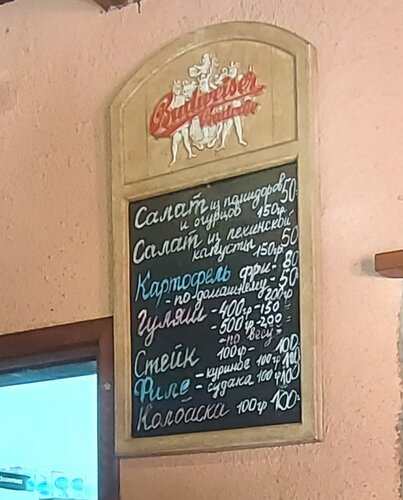 Budweiser
Budvar
Салат из помидоров 50=
и огурцов 150гр
Салат из пекинской 50
капусты 150гр
Картофель фри - 80
- по-домашнему - 50
200гр
Гуляш - 400гр - 150=
- 500гр - 200=
- по весу =
Стейк 100гр - 100
Филе - куриное 100гр 100
- судака 100гр 100
Колбаска 100гр 100=